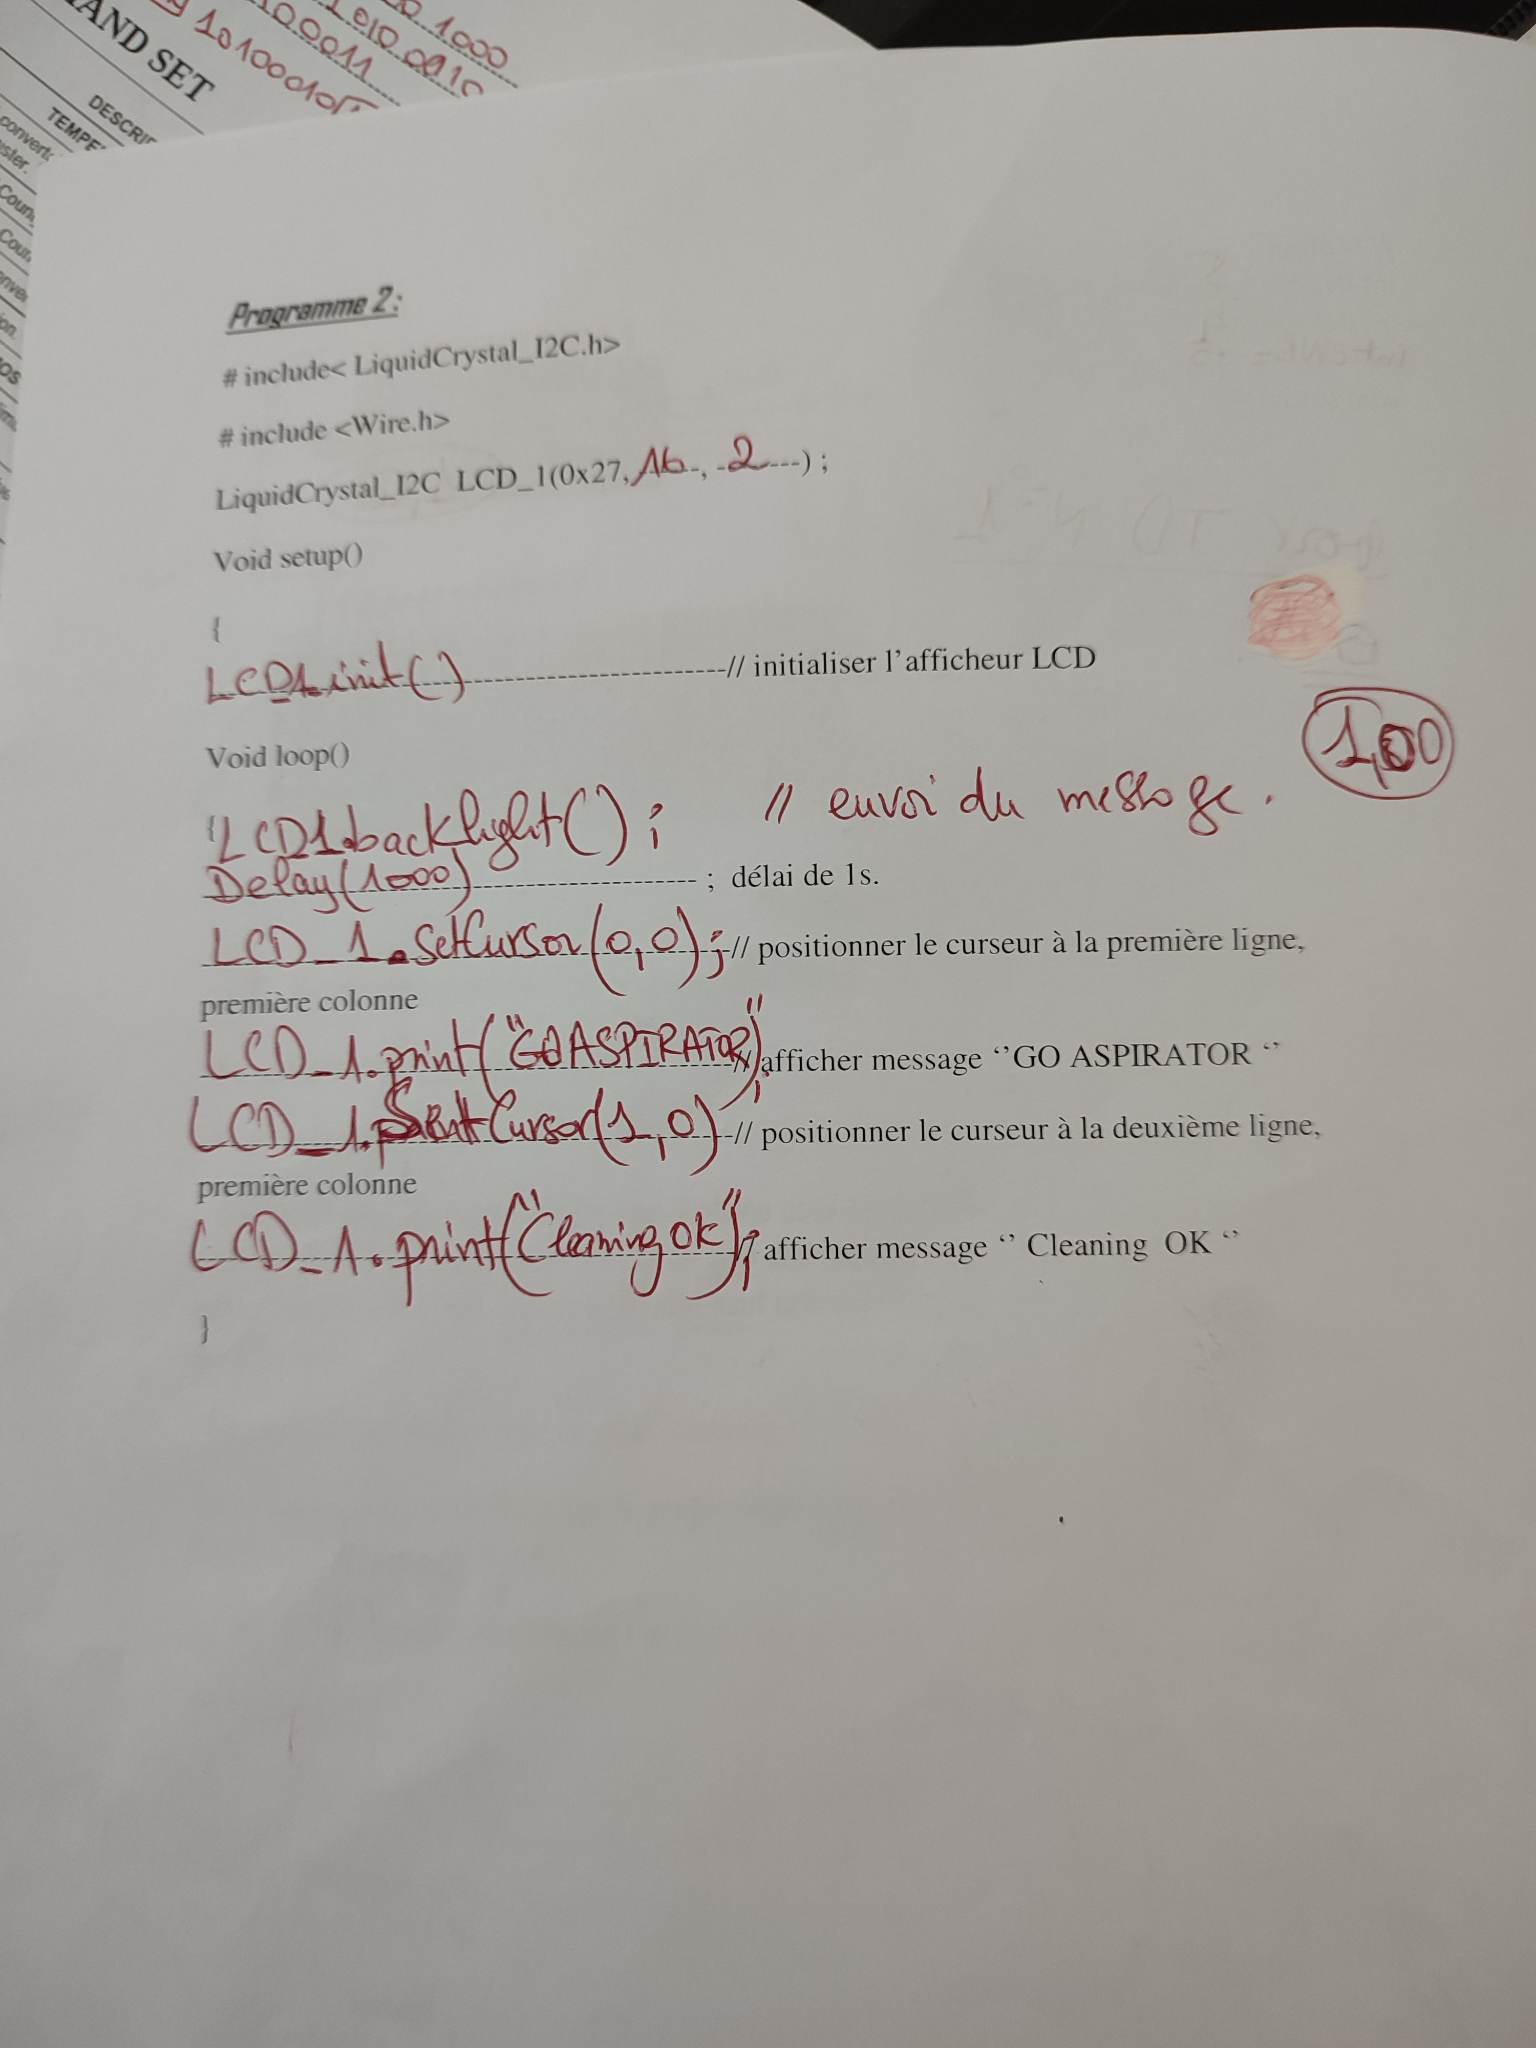 1000
1010 0010
100011
1010001
AND SET
DESCRI
TEMPE
convert
ster.
Coun
Coun
Programme 2:
# include< LiquidCrystal_I2C.h>
# include <Wire.h>
LiquidCrystal_I2C LCD_1(0x27, 16, 2) ;
Void setup()
{
LCD1.init() // initialiser l'afficheur LCD
Void loop()
1,00
{ LCD1.backlight() ; // envoi du message.
Delay(1000) ; délai de 1s.
LCD_1.setCursor(0,0); // positionner le curseur à la première ligne,
première colonne
LCD_1.print("GO ASPIRATOR"); // afficher message ‘’GO ASPIRATOR ‘’
LCD_1.SentCursor(1,0) // positionner le curseur à la deuxième ligne,
première colonne
LCD_1.print("Cleaning OK"); // afficher message ‘’ Cleaning OK ‘’
}